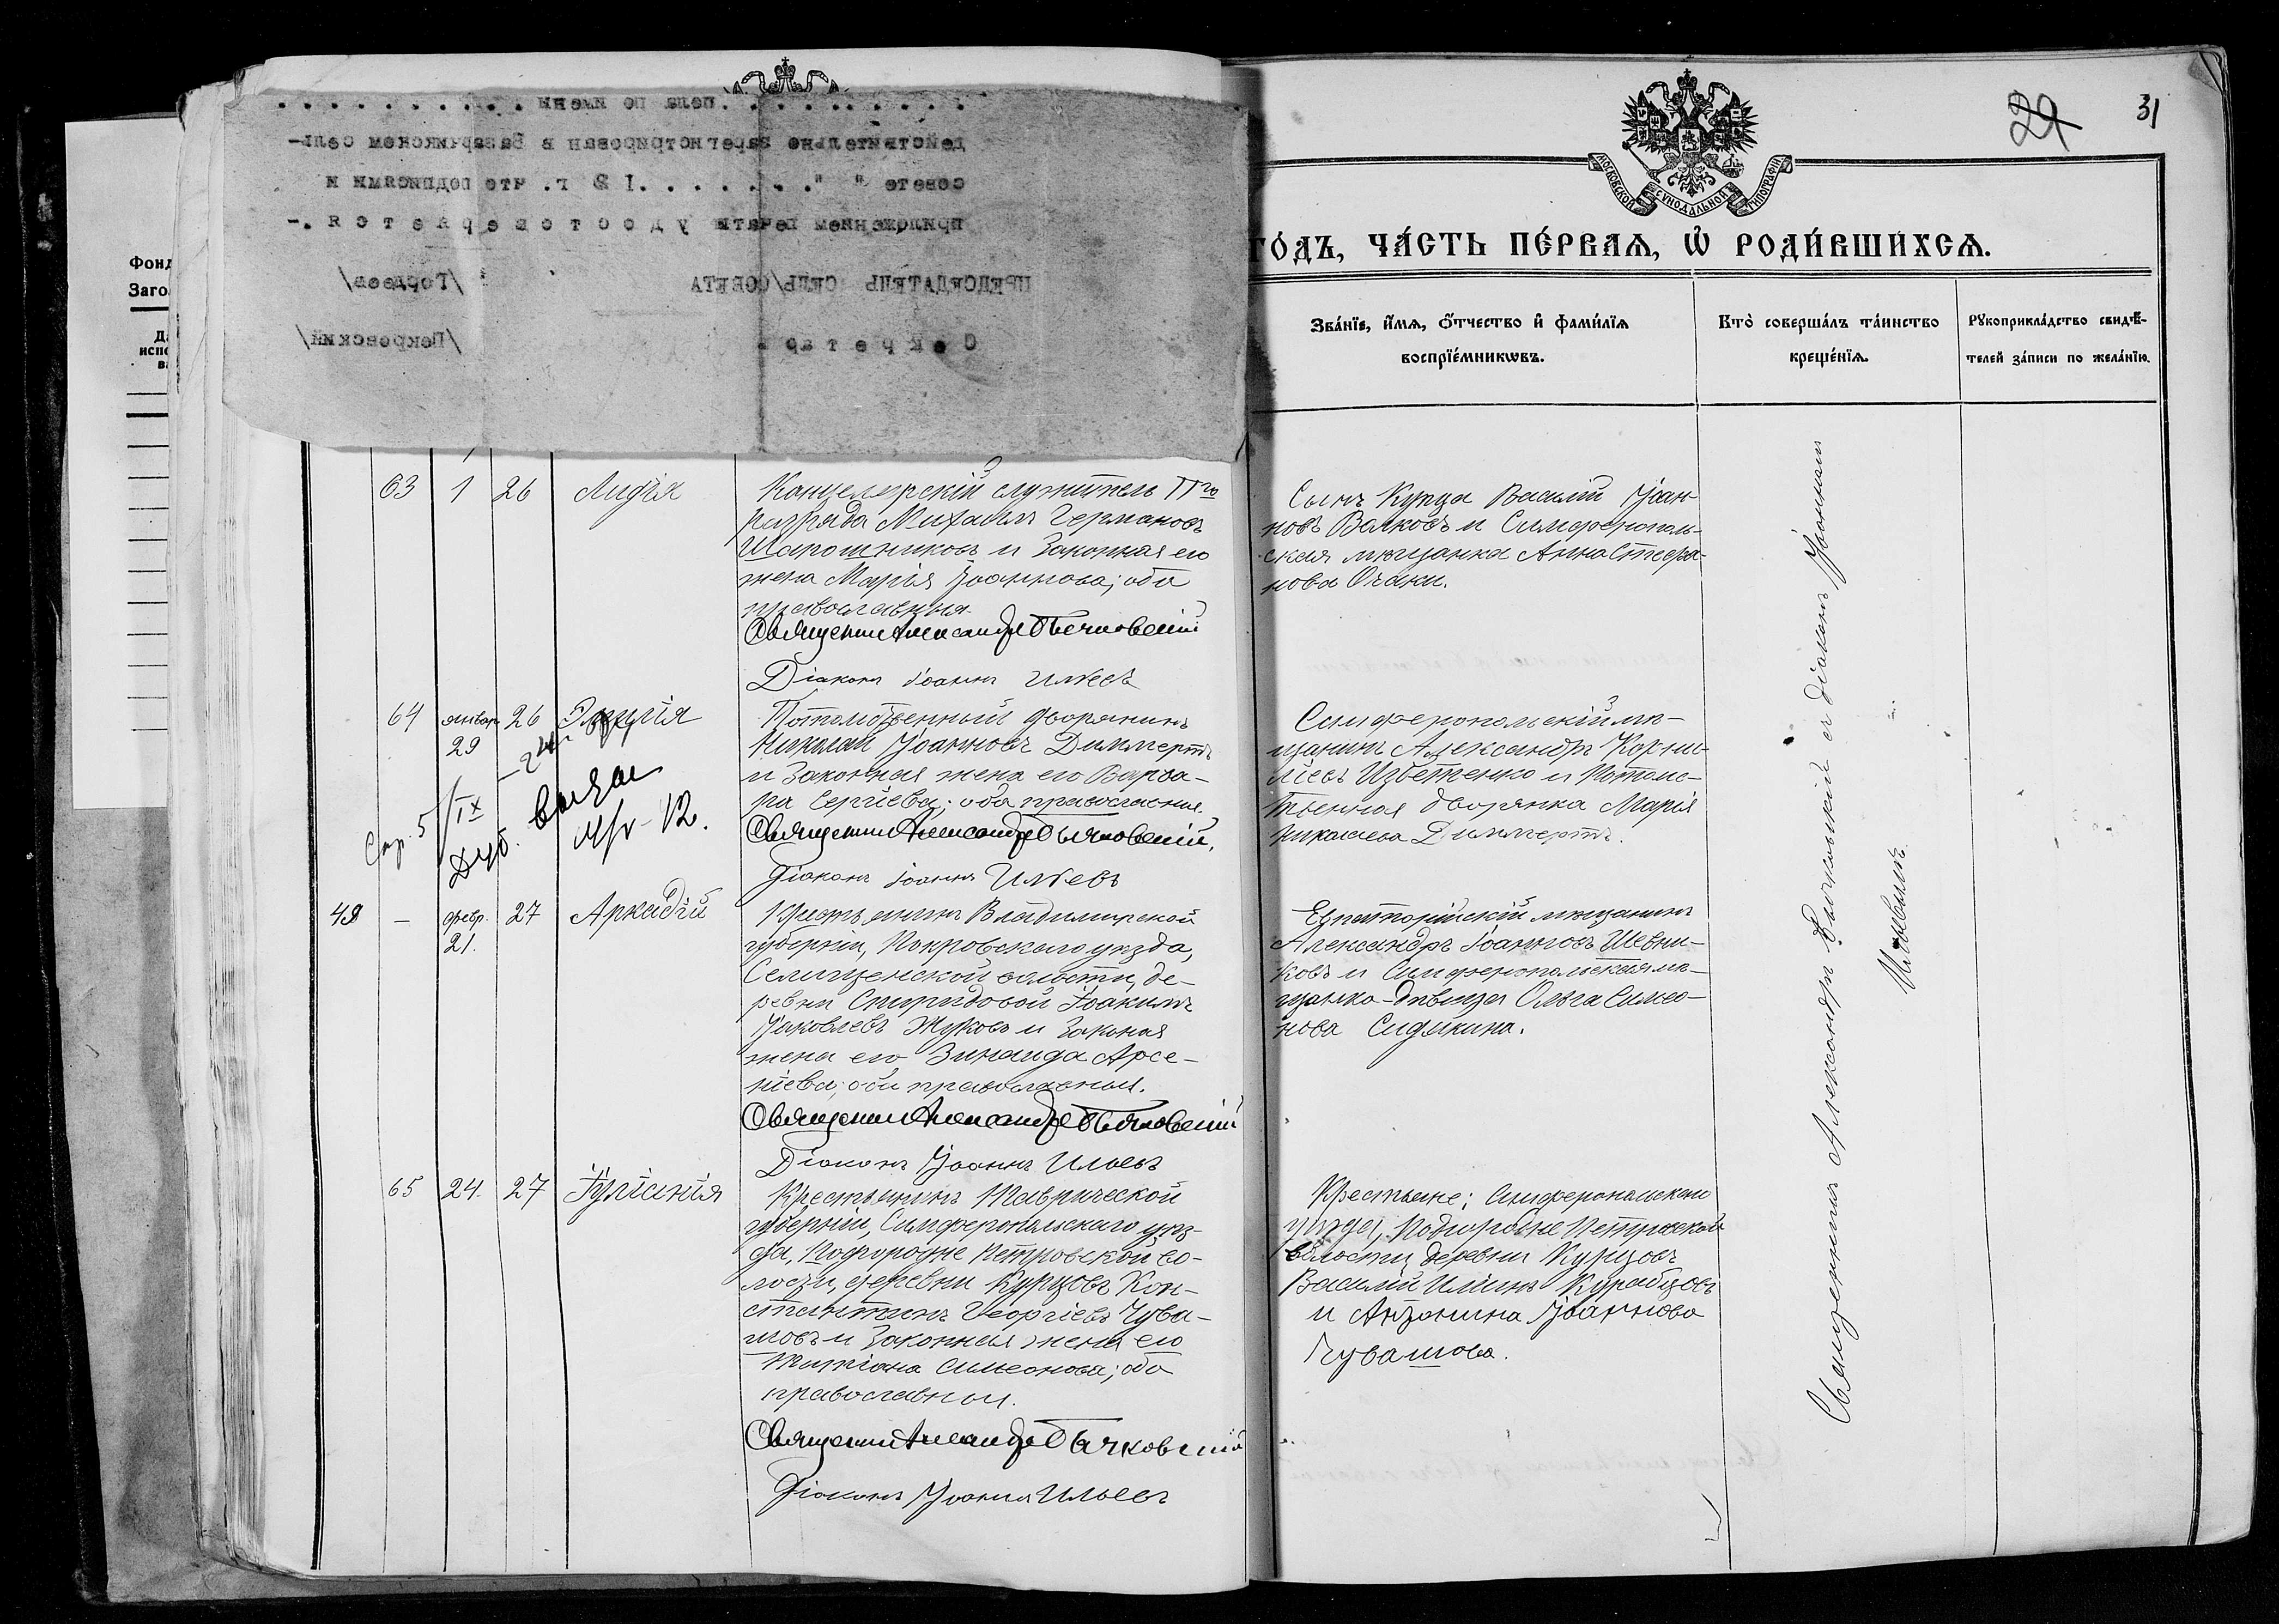 31
29
Фонд
Заго
Да
испо
ва
МОСКОВСКОЙ СѴНОДАЛЬНОЙ ТИПОГРАФІИ
. . . . . . . . . . пела по имени . . . . . . . . . .
действительно зарегистрирован в Базарчикском сель-
совете " " . . . . . . . 192 г. что подписами и
приложением печати у д о с т о в е р я е т с я .-
ПРЕДСЕДАТЕЛЬ СЕЛЬ/СОВЕТА /Гордеев/
С е к р е т а р /Покровский/
ГО́ДЪ, ЧА́СТЬ ПЕ́РВАЯ, Ѡ҆ РОДИ́ВШИХСЯ.
Зва́нїе, и҆́мѧ, ѻ҆́тчество и҆ фами́лїѧ
воспрїе́мникѡвъ.
Кто̀ соверша́лъ та́инство
креще́нїѧ.
Рꙋкоприкла́дство свидѣ́-
телей за́писи по жела́нїю.
63 1 26 Лидія
Канцелярскій служитель IIго
разряда Михаилъ Германовъ
Шапошниковъ и законная его
жена Марія Іоаннова; оба
православныя.
Священникъ Александръ Бычковскій
Діаконъ Іоаннъ Ильевъ
Сынъ Купца Василій Іоан-
новъ Волковъ и Симферополь-
ская мѣщанка Анна Стефа-
нова Очаки.
64 январ. 29 26
Потомственный дворянинъ
Николай Іоанновъ Диммертъ
и законная жена его Варва-
ра Сергіева; оба православныя.
Священникъ Александръ Бычковскій,
Діаконъ Іоаннъ Ильевъ
Симферопольскій мѣ-
щанинъ Александръ Корни-
ліевъ Избетенко и Потомс-
твенная дворянка Марія
Николаева Диммертъ.
Стр. 5/IX
Дуб. выдан
12.
49 — февр. 21. 27 Аркадій
Крестьянинъ Владимирской
губерніи, Покровскаго уѣзда,
Селищенской волости, де-
ревни Спиридовой Іоакимъ
Іаковлевъ Жуковъ и законная
жена его Зинаида Арсе-
ніева; оба православныя.
Священникъ Александръ Бычковскій
Діаконъ Іоаннъ Ильевъ
Евпаторійскій мѣщанинъ
Александръ Іоанновъ Шевни-
ковъ и Симферопольская мѣ-
щанка-дѣвица Ольга Симео-
нова Сидякина.
65 24. 27 Іуліанія
Крестьянинъ Таврической
губерніи, Симферопольскаго уѣз-
да, Подгородне Петровской во-
лости, деревни Курцовъ Кон-
стантинъ Георгіевъ Чува-
шовъ и законная жена его
Татіана Симеонова; оба
православныи.
Священникъ Александръ Бычковскій
Діаконъ Іоаннъ Ильевъ
Крестьяне: Симферопольскаго
уѣзда, Подгородне Петровской
волости деревни Курцовъ
Василій Ильинъ Курабцовъ
и Антонина Іоаннова
Чувашова.
Священникъ Александръ Бычковскій и діаконъ Іоаннъ
Ильевъ